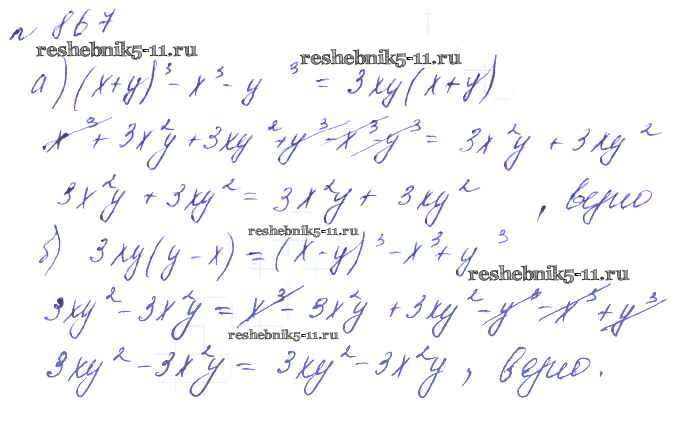 № 867
reshebnik5-11.ru
reshebnik5-11.ru
а) (x+y)³ - x³ - y³ = 3xy(x+y)
x³ + 3x²y + 3xy² + y³ - x³ - y³ = 3x²y + 3xy²
3x²y + 3xy² = 3x²y + 3xy², верно
reshebnik5-11.ru
б) 3xy(y-x) = (x-y)³ - x³ + y³
reshebnik5-11.ru
3xy² - 3x²y = x³ - 3x²y + 3xy² - y³ - x³ + y³
reshebnik5-11.ru
3xy² - 3x²y = 3xy² - 3x²y, верно.